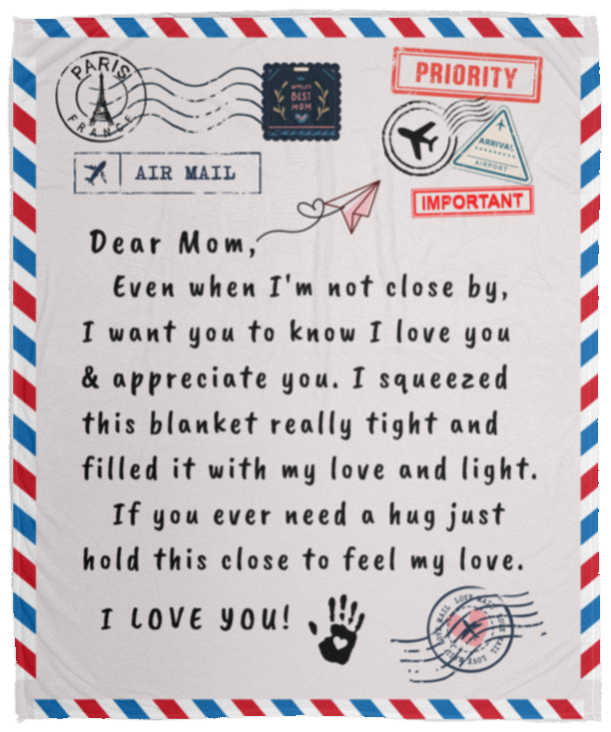 PARIS
FRANCE
WORLD'S
BEST
MOM
PRIORITY
ARRIVAL
AIRPORT
AIR MAIL
IMPORTANT
Dear Mom,
Even when I'm not close by,
I want you to know I love you
& appreciate you. I squeezed
this blanket really tight and
filled it with my love and light.
If you ever need a hug just
hold this close to feel my love.
I LOVE YOU!
LOVE MAIL LOVE MAIL LOVE MAIL LOVE MAIL